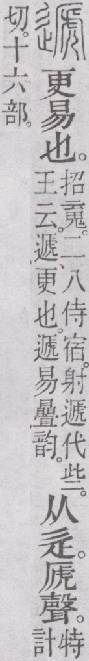 遞更易也。招䰟。二八侍宿。射遞代些。王云。遞、更也。遞易曡韵。从辵。虒聲。特計切。十六部。